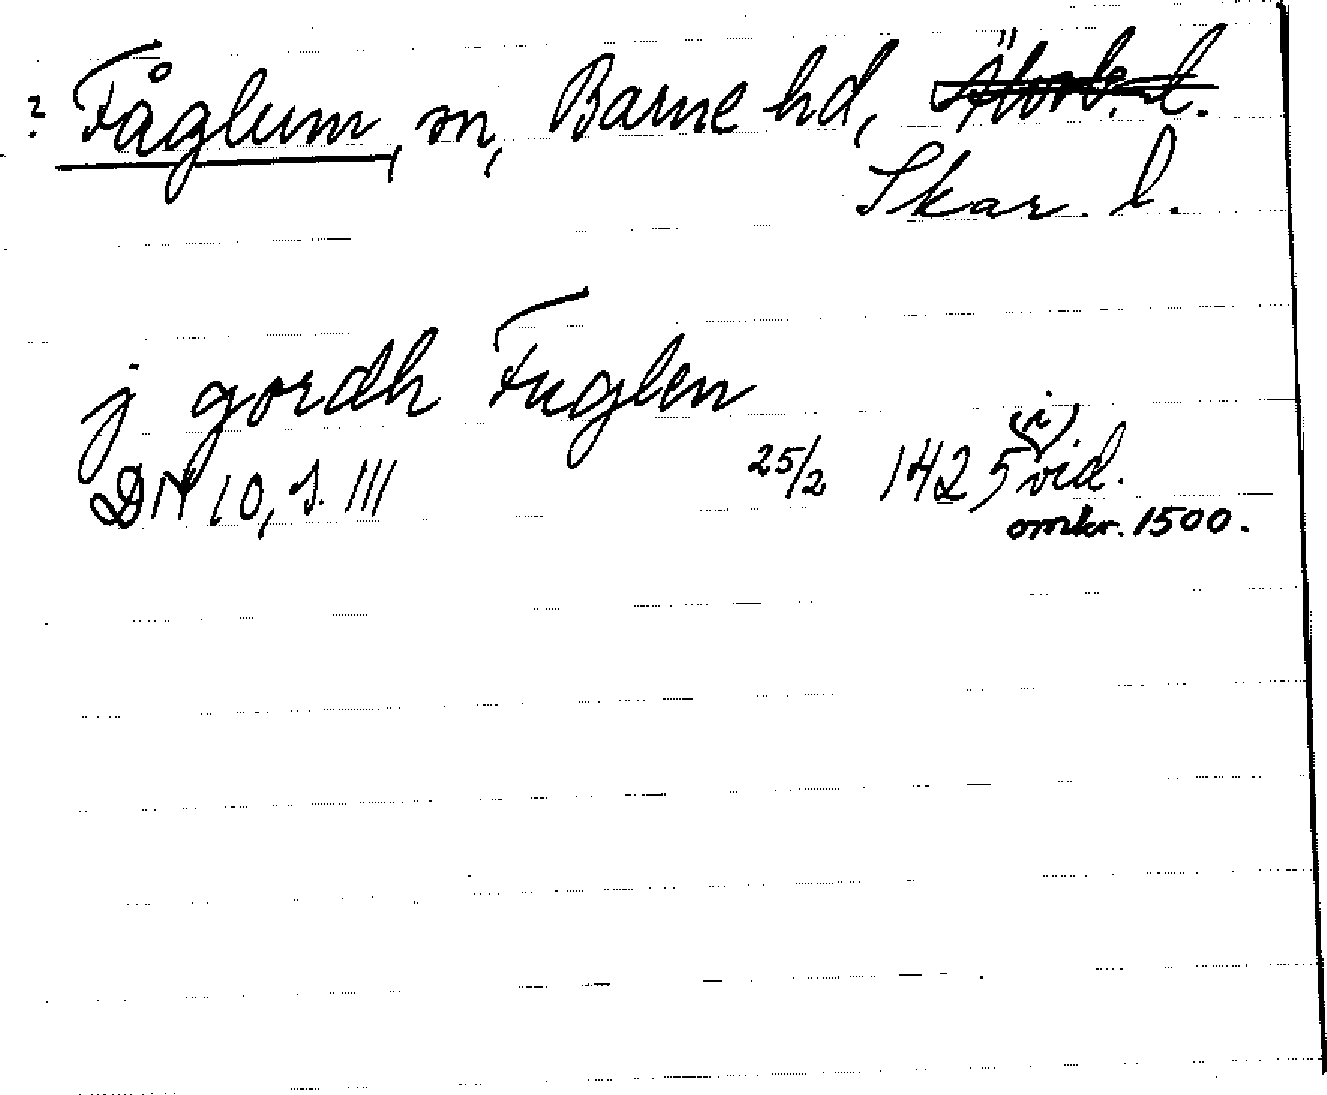 ? Fåglum, sn, Barne hd, Älvsb. l.
Skar. l.
j gordh Fuglen
DN 10, s. 111 25/2 1425 (i) vid.
omkr. 1500.